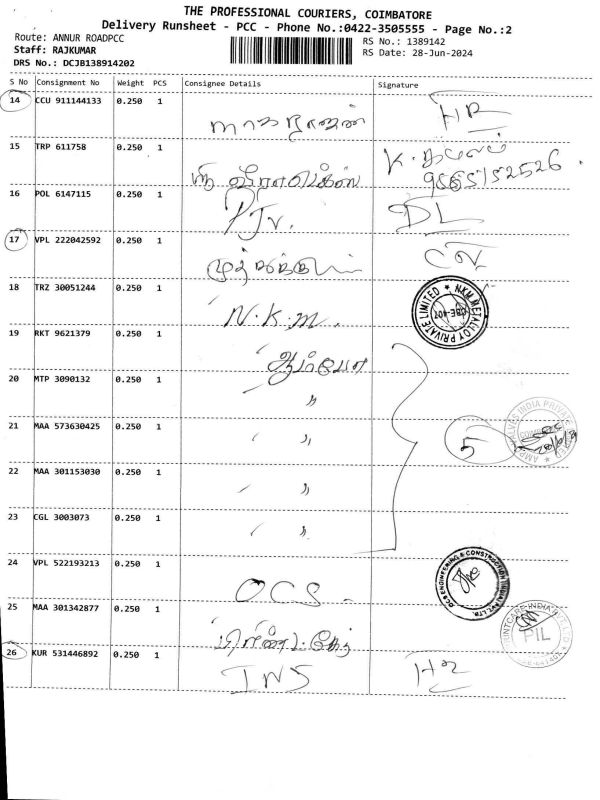 THE PROFESSIONAL COURIERS, COIMBATORE
Delivery Runsheet - PCC - Phone No.:0422-3505555 - Page No.:2
Route: ANNUR ROADPCC
RS No.: 1389142
Staff: RAJKUMAR
RS Date: 28-Jun-2024
DRS No.: DCJB138914202
S No Consignment No Weight PCS Consignee Details Signature
14 CCU 911144133 0.250 1
நாகராஜன்
15 TRP 611758 0.250 1
9585152526
16 POL 6147115 0.250 1
DL
17 VPL 222042592 0.250 1
18 TRZ 30051244 0.250 1
N.K.M.
NKM METALLOY PRIVATE LIMITED
19 RKT 9621379 0.250 1
20 MTP 3090132 0.250 1
"
21 MAA 573630425 0.250 1
" 5
22 MAA 301153030 0.250 1
"
23 CGL 3003073 0.250 1
"
24 VPL 522193213 0.250 1
OCS
OCS ENGINEERING & CONSTRUCTION INDIA PVT. LTD.
25 MAA 301342877 0.250 1
PIL
26 KUR 531446892 0.250 1
INS